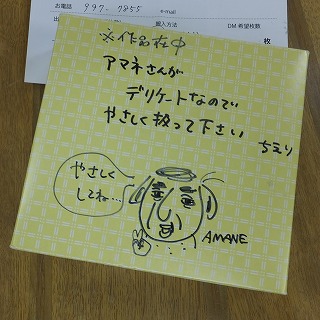 お電話 997-7855 e-mail
搬入方法 DM希望枚数
枚
※作品在中
アマネさんが
デリケートなので
やさしく扱って下さい
ちえり
やさしく
してね…
AMANE